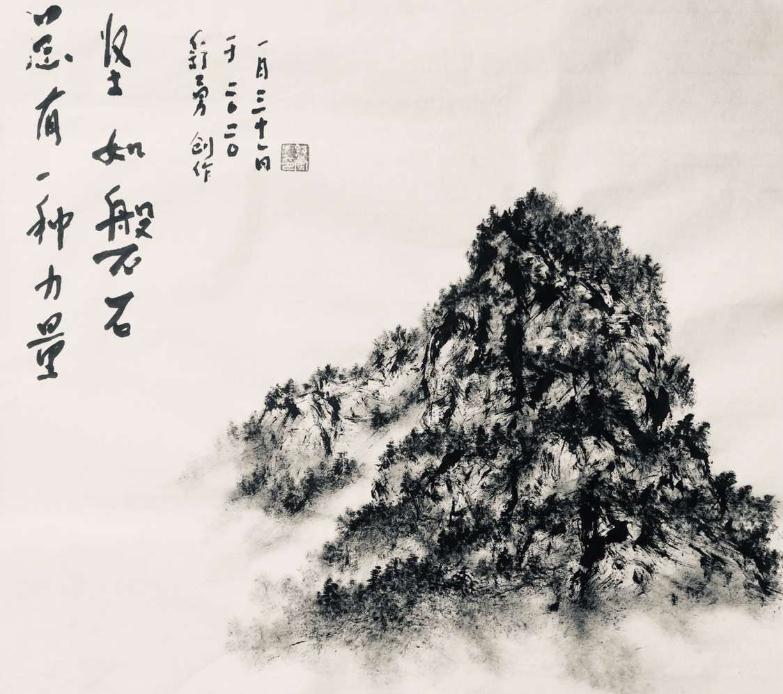 总有一种力量
坚如磐石
勇创作
于二〇二〇
一月三十一日